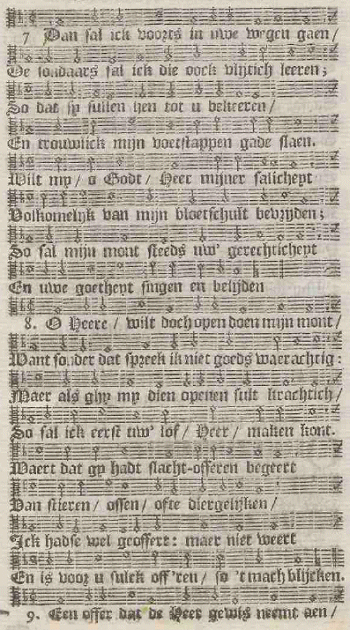 7 Dan sal ick voorts in uwe wegen gaen /
De sondaars sal ick die oock vlijtich leeren;
So dat sy sullen hen tot u bekeeren /
En trouwlick mijn voetstappen gade slaen.
Wilt my / o Godt / Heer mijner salicheyt
Volkomelyk van mijn bloetschult bevryden;
So sal mijn mont steeds uw' gerechticheyt
En uwe goetheyt singen en belijden
8. O Heere / wilt doch open doen mijn mont /
Want sonder dat spreek ik niet goeds waerachtig:
Maer als ghy my dien openen sult krachtich /
So sal ick eerst uw' lof / Heer / maken kont.
Waert dat gy hadt slacht-offeren begeert
Van stieren / ossen / ofte diergelijken /
Ick hadse wel geoffert: maer niet weert
En is voor u sulck off'ren / so 't mach blijcken.
9. Een offer dat de Heer gewis neemt aen /